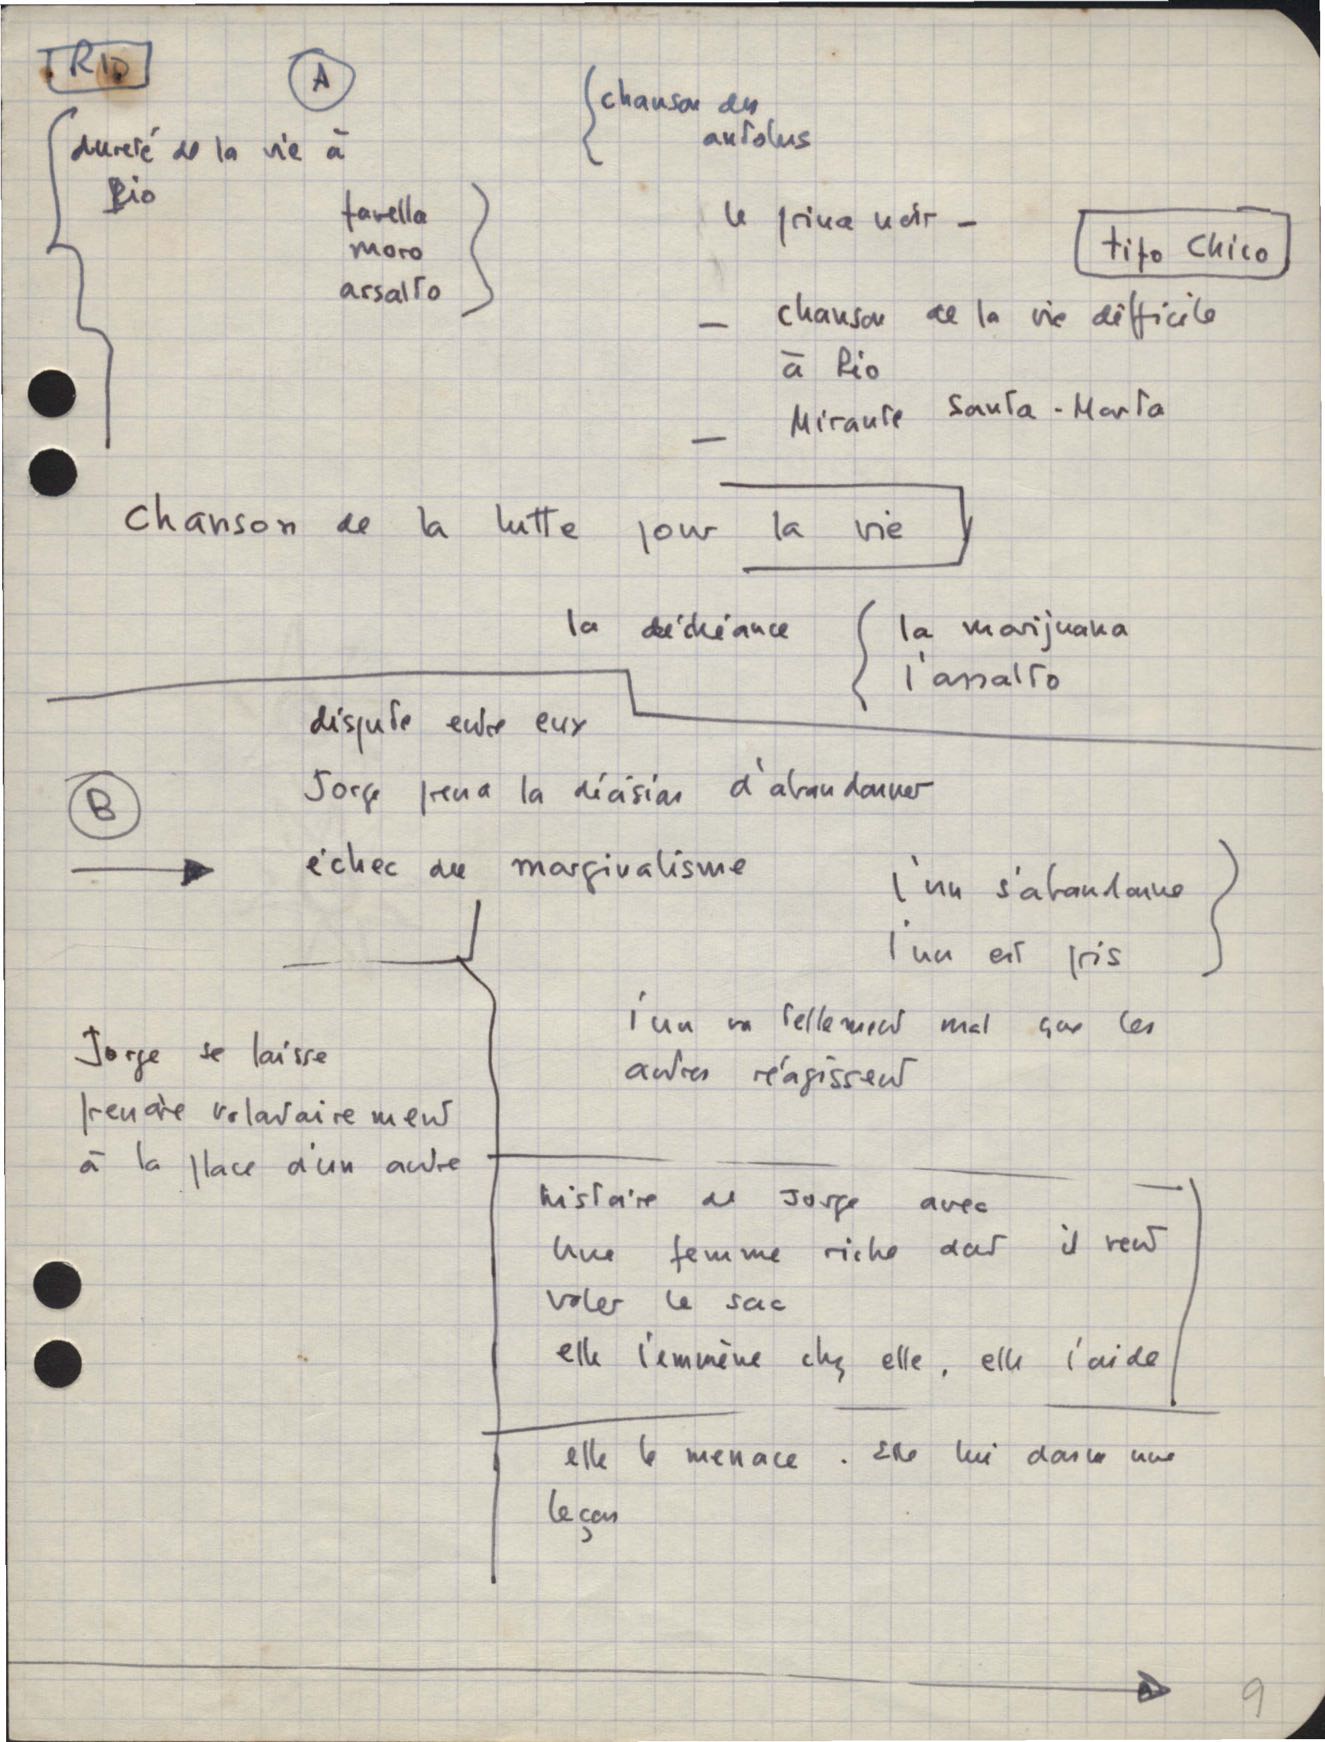 RIO
A
dureté de la vie à
Rio
favella
moro
assalto
chanson des
autobus
le prince noir -
tipo Chico
- chanson de la vie difficile
à Rio
- Mirante Santa-Marta
Chanson de la lutte pour la vie
la déchéance
la marijuana
l'assalto
dispute entre eux
B
Jorge prend la décision d'abandonner
échec du marginalisme
l'un s'abandonne
l'un est pris
l'un va tellement mal que les
autres réagissent
Jorge se laisse
prendre volontairement
à la place d'un autre
histoire de Jorge avec
une femme riche dont il veut
voler le sac
elle l'emmène chez elle, elle l'aide
elle le menace. Elle lui donne une
leçon
9